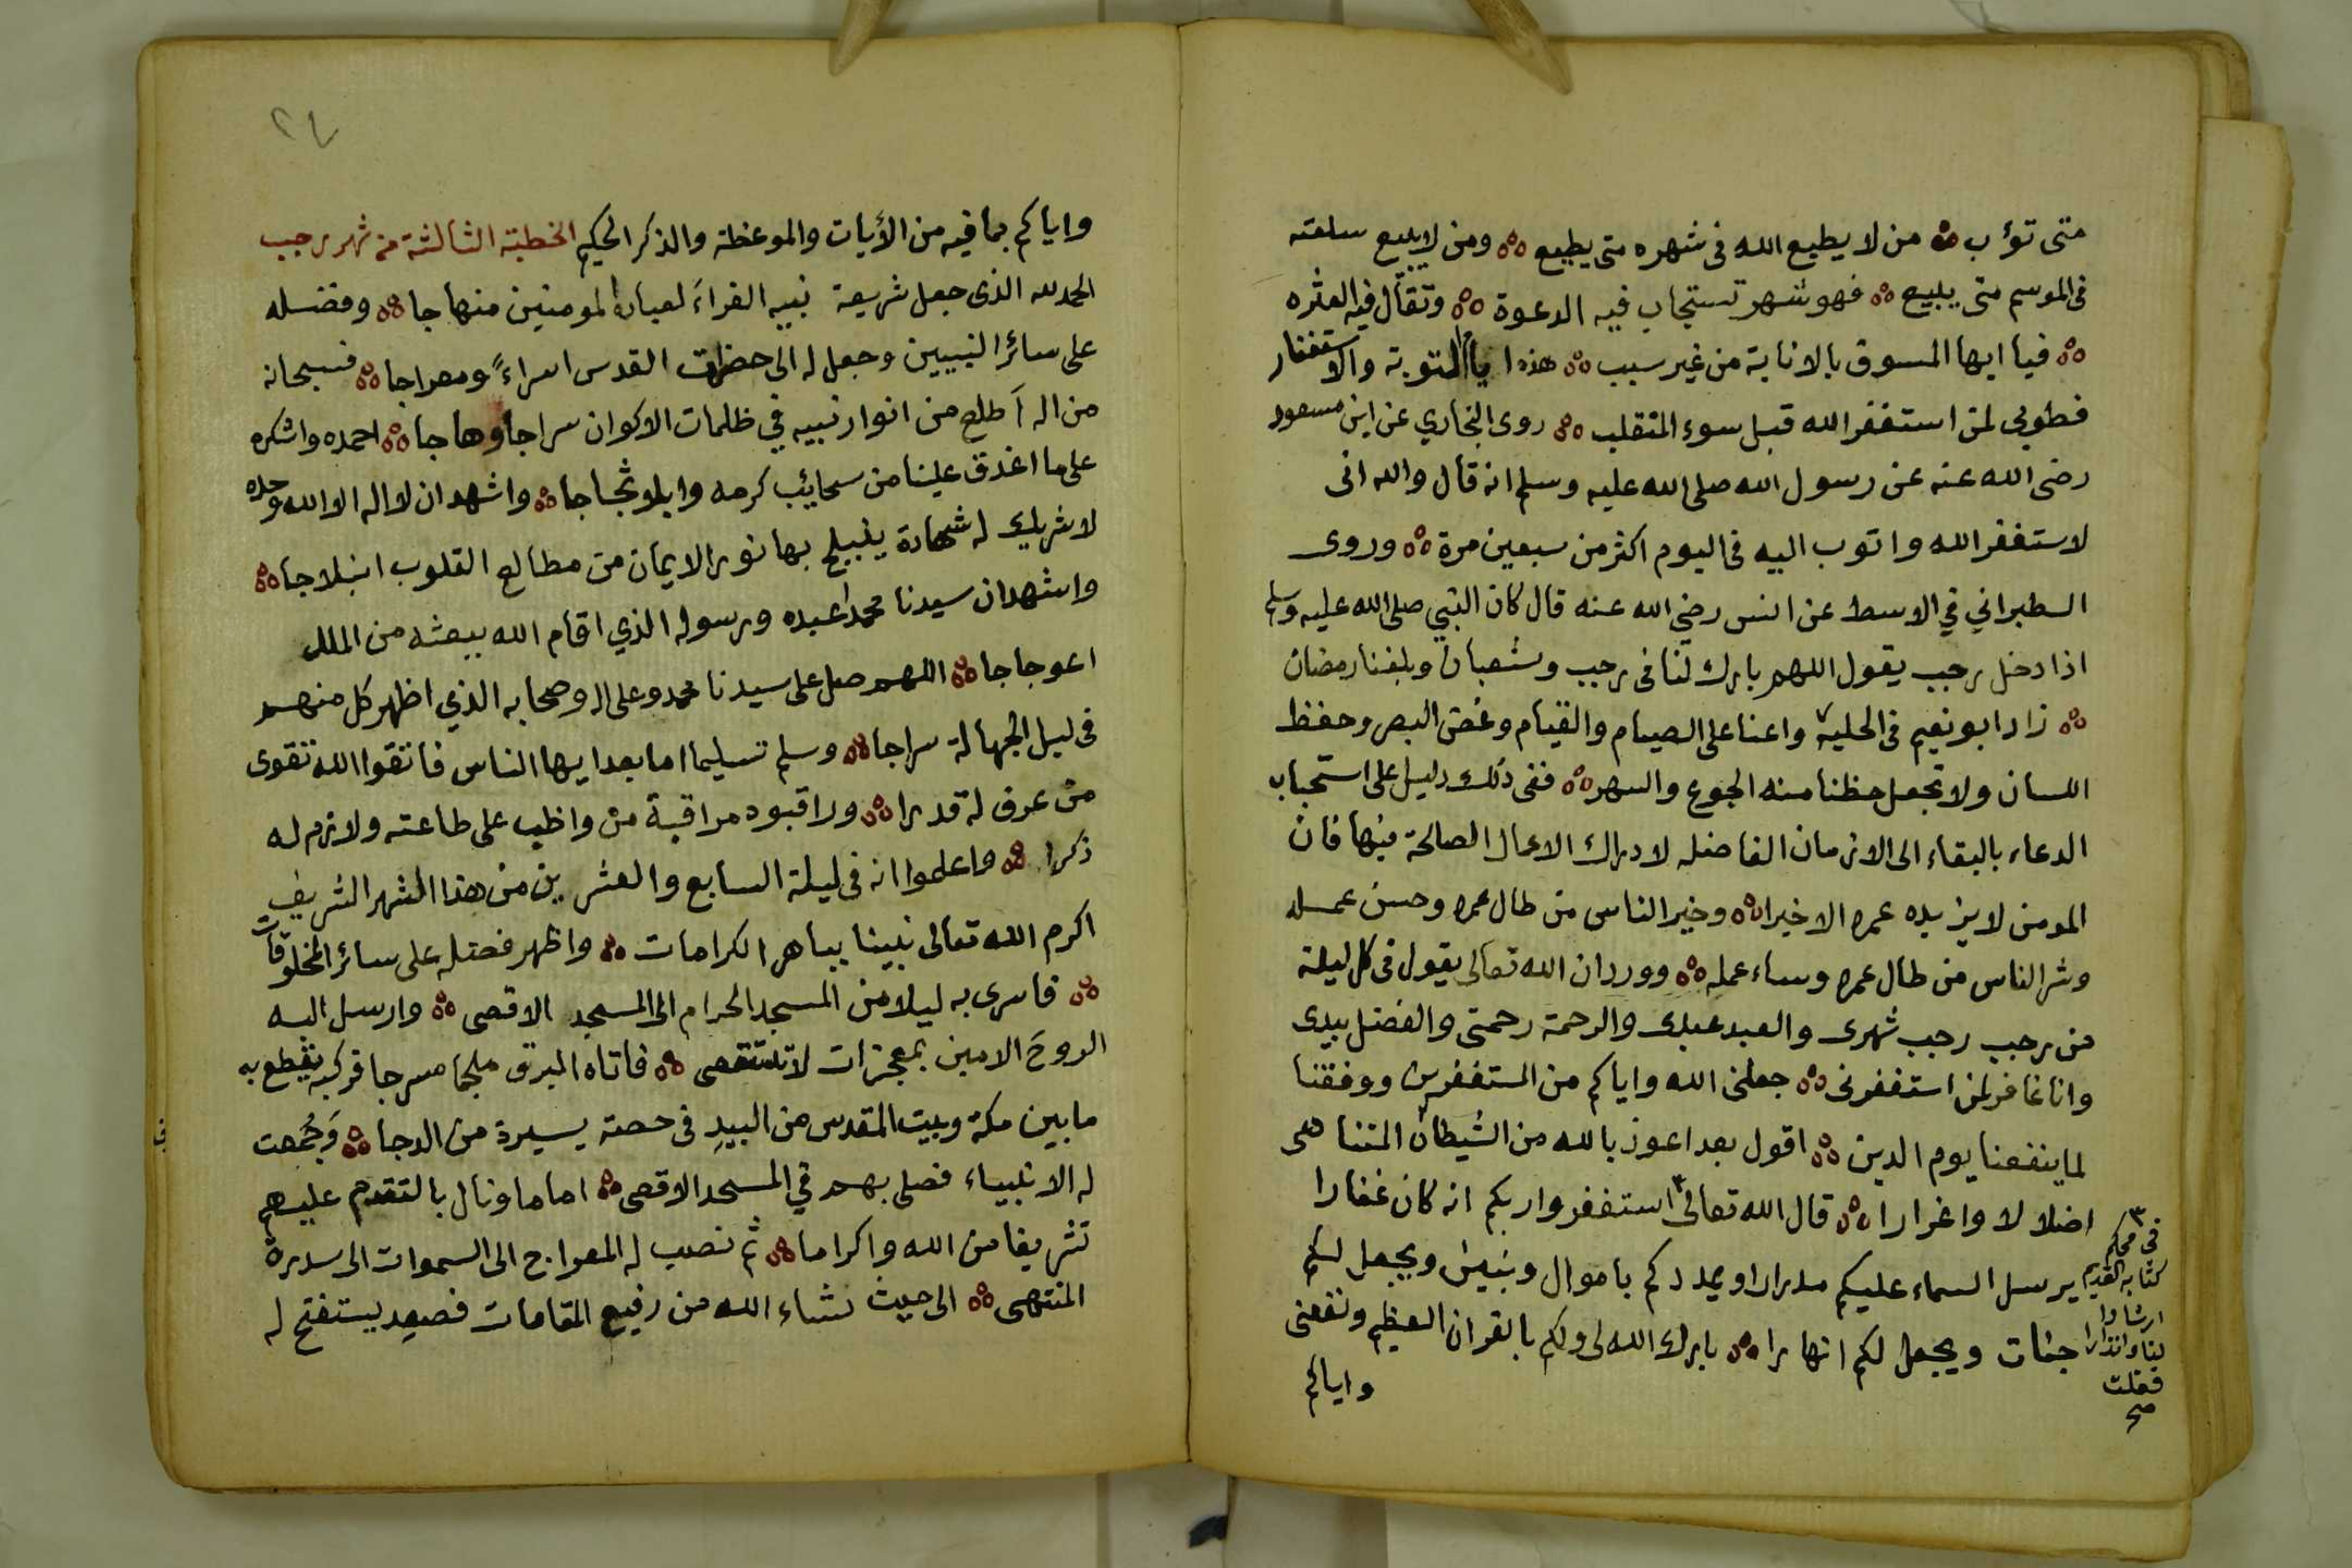 متى تؤب ۞ من لا يطيع الله فى شهره متى يطيع ۞ ومن لا يبيع سلعته
فى الموسم متى يبيع ۞ فهو شهر تستجاب فيه الدعوة ۞ وتقال فيه العثره
۞ فيا ايها المسوف بالانابة من غير سبب ۞ هذه ايام التوبة والاستغفار
فطوبى لمن استغفر الله قبل سوء المنقلب ۞ روى البخاري عن ابن مسعود
رضى الله عنه عن رسول الله صلى الله عليه وسلم انه قال والله انى
لاستغفر الله واتوب اليه فى اليوم اكثر من سبعين مرة ۞ وروى
الطبراني في الاوسط عن انس رضي الله عنه قال كان النبي صلى الله عليه وسلم
اذا دخل رجب يقول اللهم بارك لنا فى رجب وشعبان وبلغنا رمضان
۞ زاد ابو نعيم فى الحلية واعنا على الصيام والقيام وغض البصر وحفظ
اللسان ولا تجعل حظنا منه الجوع والسهر ۞ ففى ذلك دليل على استحباب
الدعاء بالبقاء الى الازمان الفاضله لادراك الاعمال الصالحة فيها فان
المومن لا يزيده عمره الا خيرا ۞ وخير الناس من طال عمره وحسن عمله
وشر الناس من طال عمره وساء عمله ۞ وورد ان الله تعالى يقول فى كل ليلة
من رجب رجب شهرى والعبد عبدى والرحمة رحمتى والفضل بيدى
وانا غافر لمن استغفرنى ۞ جعلنى الله واياكم من المستغفرين ووفقنا
لما ينفعنا يوم الدين ۞ اقول بعد اعوذ بالله من الشيطان المتناهى
اضلالا واغرارا ۞ قال الله تعالى ٣ استغفروا ربكم انه كان غفارا
يرسل السماء عليكم مدرارا ويمددكم باموال وبنين ويجعل لكم
جنات ويجعل لكم انهارا ۞ بارك الله لى ولكم بالقران العظيم ونفعنى
واياكم
٣
فى محكم
كتابه القديم
ارشادا
لنا وانذارا
فقلت
صح
٢٧
واياكم بما فيه من الأيات والموعظة والذكر الحكيم الخطبة الثالثة من شهر رجب
الحمد لله الذى جعل شريعة نبيه الغراء لعباده المومنين منهاجا ۞ وفضله
على سائر النبيين وجعل له الى حضرات القدس اسراءً ومعراجا ۞ فسبحانه
من اله اَطلع من انوار نبيه في ظلمات الاكوان سراجا وهاجا ۞ احمده واشكره
على ما اغدق علينا من سحائب كرمه وابلا وثجاجا ۞ واشهد ان لا اله الا الله وحده
لا شريك له شهادة ينبلج بها نور الايمان من مطالع القلوب انبلاجا ۞
واشهد ان سيدنا محمدا عبده ورسوله الذي اقام الله ببعثه من الملل
اعوجاجا ۞ اللهم صل على سيدنا محمد وعلى اله وصحابه الذي اظهر كل منهم
فى ليل الجهالة سراجا ۞ وسلم تسليما اما بعد ايها الناس فاتقوا الله تقوى
من عرف له قدرا ۞ وراقبوه مراقبة من واظب على طاعته ولازم له
ذكرا ۞ واعلموا انه فى ليلة السابع والعشرين من هذا الشهر الشريف
اكرم الله تعالى نبينا بباهر الكرامات ۞ واظهر فضله على سائر المخلوقات
۞ فاسرى به ليلا من المسجد الحرام الى المسجد الاقصى ۞ وارسل اليه
الروحَ الامين بمعجزات لا تستقصى ۞ فاتاه البرق ملجما مسرجا فركبه يقطع به
ما بين مكة وبيت المقدس من البيدِ فى حصة يسيرة من الدجا ۞ وَجُمعت
له الانبياء فصلى بهم في المسجد الاقصى ۞ اماما ونال بالتقدم عليهم
تشريفا من الله واكراما ۞ ثم نصب له المعراج الى السموات الى سدرة
المنتهى ۞ الى حيث شاء الله من رفيع المقامات فصعد يستفتح له